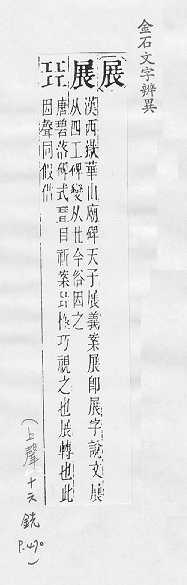 金石文字辨異
展
展
漢西嶽華山廟碑天子展義案展即展字說文展
从四工碑變从卄今俗因之
㠭
唐碧落碑式㠭目祈案㠭極巧視之也展轉也此
因聲同假借
(上聲 十六 銑 P.490)